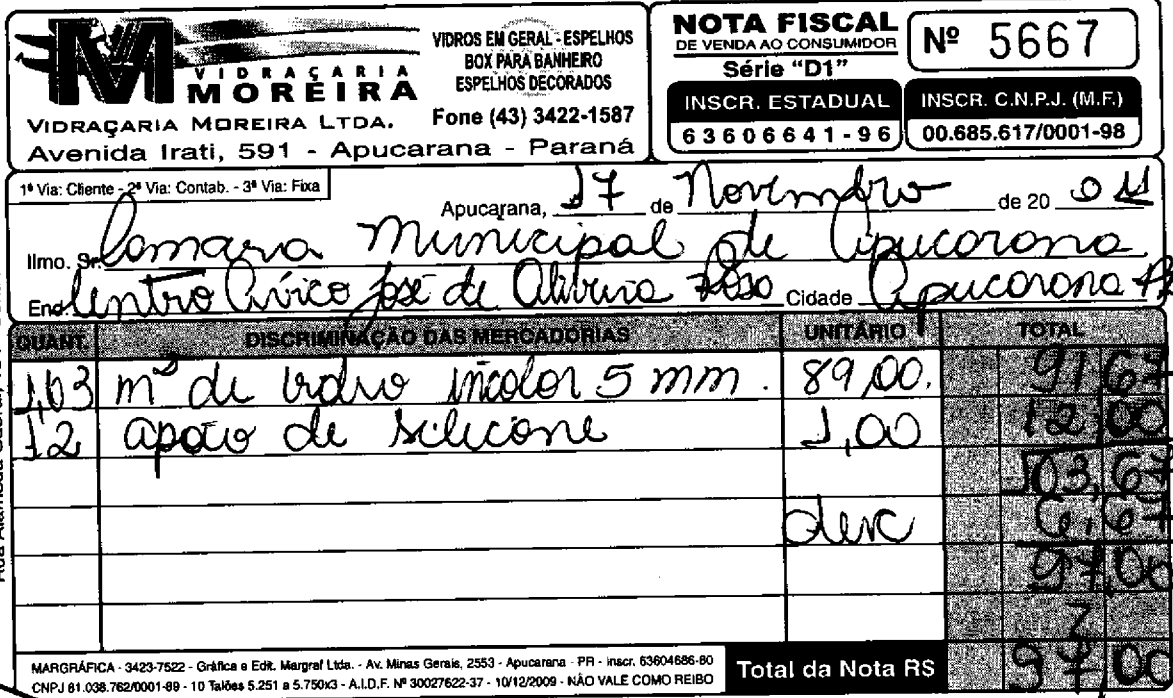 M VIDRAÇARIA MOREIRA
VIDRAÇARIA MOREIRA LTDA.
Avenida Irati, 591 - Apucarana - Paraná
VIDROS EM GERAL - ESPELHOS
BOX PARA BANHEIRO
ESPELHOS DECORADOS
Fone (43) 3422-1587
NOTA FISCAL
DE VENDA AO CONSUMIDOR
Série "D1"
Nº 5667
INSCR. ESTADUAL
63606641-96
INSCR. C.N.P.J. (M.F.)
00.685.617/0001-98
1ª Via: Cliente - 2ª Via: Contab. - 3ª Via: Fixa
Apucarana, 17 de Novembro de 20 011
Ilmo. Sr. Camara Municipal de Apucarana
End. Centro Civico José de Oliveira Rosa Cidade Apucarana PR
QUANT. DISCRIMINAÇÃO DAS MERCADORIAS UNITÁRIO TOTAL
1,03 m² de vidro incolor 5 mm. 89,00. 91,67
12 apoio de silicone 1,00 12,00
103,67
desc 6,67
97,00
Total da Nota R$ 97,00
MARGRÁFICA - 3423-7522 - Gráfica e Edit. Margraf Ltda. - Av. Minas Gerais, 2553 - Apucarana - PR - Inscr. 63604686-80
CNPJ 81.038.762/0001-89 - 10 Talões 5.251 a 5.750x3 - A.I.D.F. Nº 30027622-37 - 10/12/2009 - NÃO VALE COMO REIBO